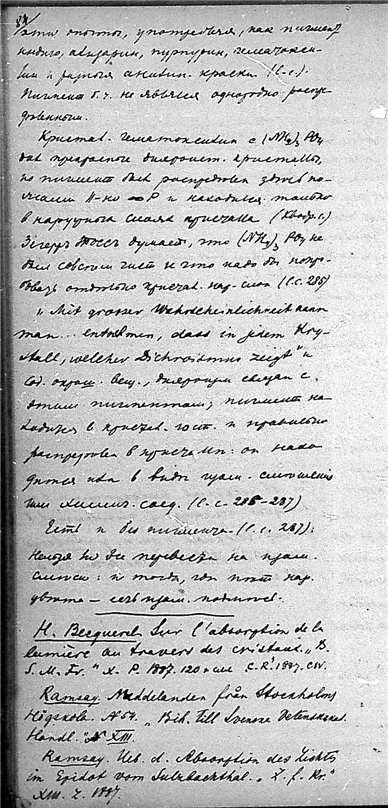 эти опыты, употребляя, как пигмент
индиго, ализарин, пурпурин, гематокси-
лин и разныя анилин. краски (l.c.).
Пигмент б.ч. не являлся однородно распре-
деленным.
Кристал. гематоксилин с (NH4)3 PO4
дал прекрасные дихроист. кристаллы,
но пигмент был распределен здесь
∞P и находился только
в наружных слоях кристалла
думает, что (NH4)3 PO4 не
был совсем чист и что надо бы попро-
бовать отдельно кристал. нар. слои (l.c. 285)
"Mit grosser Wahrscheinlichkeit kann
man... entnehmen, dass in jedem Kry-
stall, welcher Dichroismus zeigt" и
сод. окраш. вещ., дихроизм связан с
этим пигментом; пигмент на-
ходится в кристал. сост. и правильно
распределен в кристалле: он нахо-
дится или в виде изом. смешения
или химич. соед. (l.c. 286-287)
Есть и без пигмента (l.c. 287):
Нельзя ли все перевести на изом.
смеси: и тогда, где нет нар.
цвета – есть изом.
H. Becquerel Sur l'absorption de la
lumière au travers des cristaux. "B.
S. M. Fr." X. P. 1887. 120 C.R. 1887. CIV.
Ramsay. Meddelanden från Stockholms
Högskola. № 54. "Bih. till Svenska Vetenskaps.
Handl." XIII.
Ramsay. Ueb. d. Absorption des Lichts
im Epidot vom Sulzbachthal. "Z. f. Kr."
XIII. L. 1887.